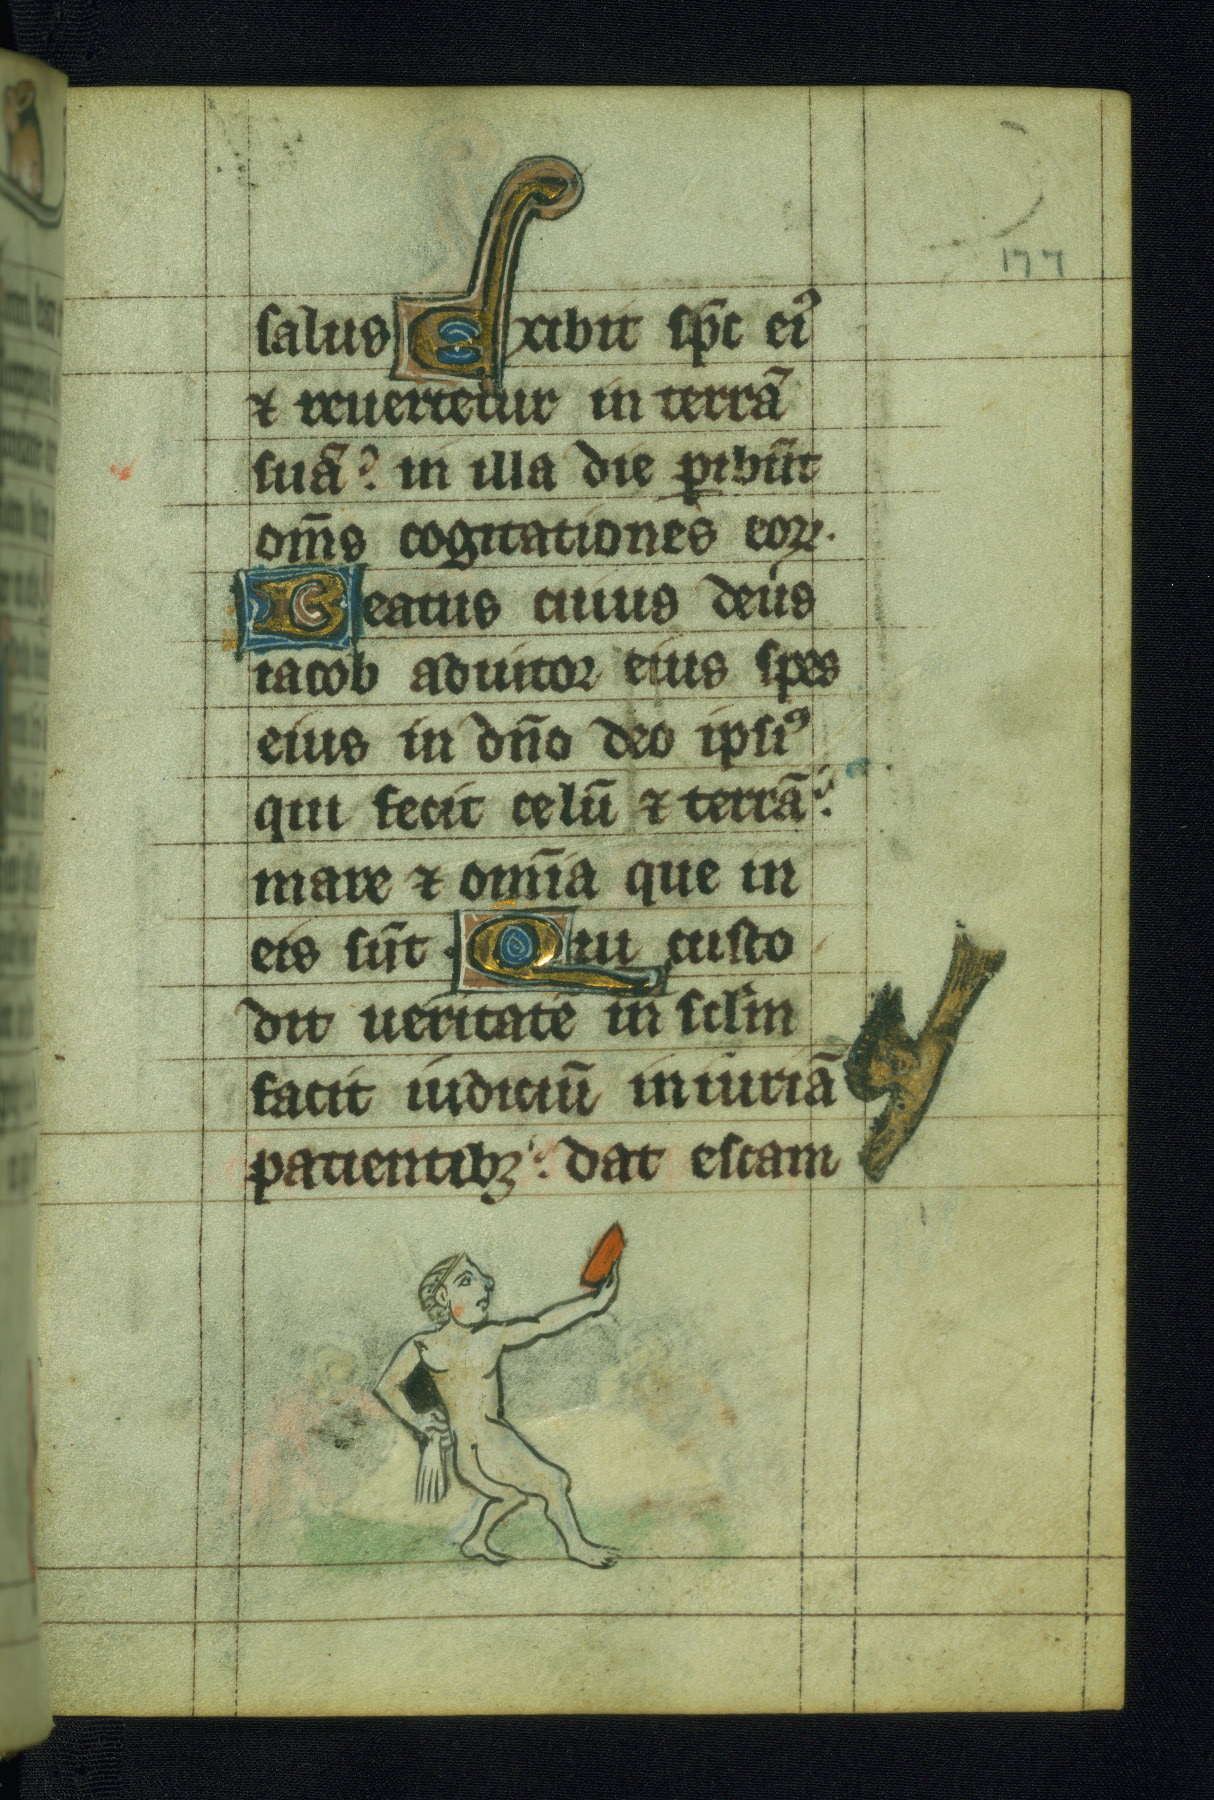 177
salus Exibit sp̄c ei᾿
⁊ reuertetur in terrā
suā? in illa die ꝑibūt
om̄s cogitationes eoꝝ.
Beatus cuius deus
iacob adiutor eius spes
eius in dn̄o deo ipsiꝰ
qui fecit celū ⁊ terrā?
mare ⁊ omīa que in
eis sūt. Qui custo
dit ueritate in sclm̄
facit iudiciū iniuriā
patientibꝫ? dat escam